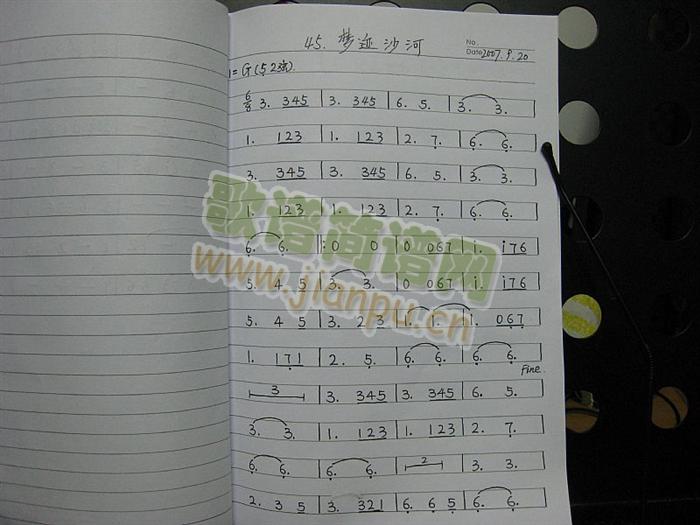 45. 梦迹沙河
No.
Date 2007. 9. 20
1 = G (52弦)
6/8 3. 345 | 3. 345 | 6. 5. | 3. 3. |
1. 123 | 1. 123 | 2. 7. | 6. 6. |
3. 345 | 3. 345 | 6. 5. | 3. 3. |
1. 123 | 1. 123 | 2. 7. | 6. 6. |
6. 6. |: 0 0 | 0 067 | i. i76 |
5. 4 5 | 3. 3. | 0 067 | i. i76 |
5. 4 5 | 3. 2 3 | 1. 1. | 1. 067 |
1. 171 | 2. 5. | 6. 6. | 6. 6. |
Fine.
3 | 3. 345 | 3. 345 | 6. 5. |
3. 3. | 1. 123 | 1. 123 | 2. 7. |
6. 6. | 6. 6. | 2 | 3. 3. |
2. 3 5 | 3. 321 | 6. 6 5 | 6. 6. |
歌谱简谱网
www.jianpu.cn